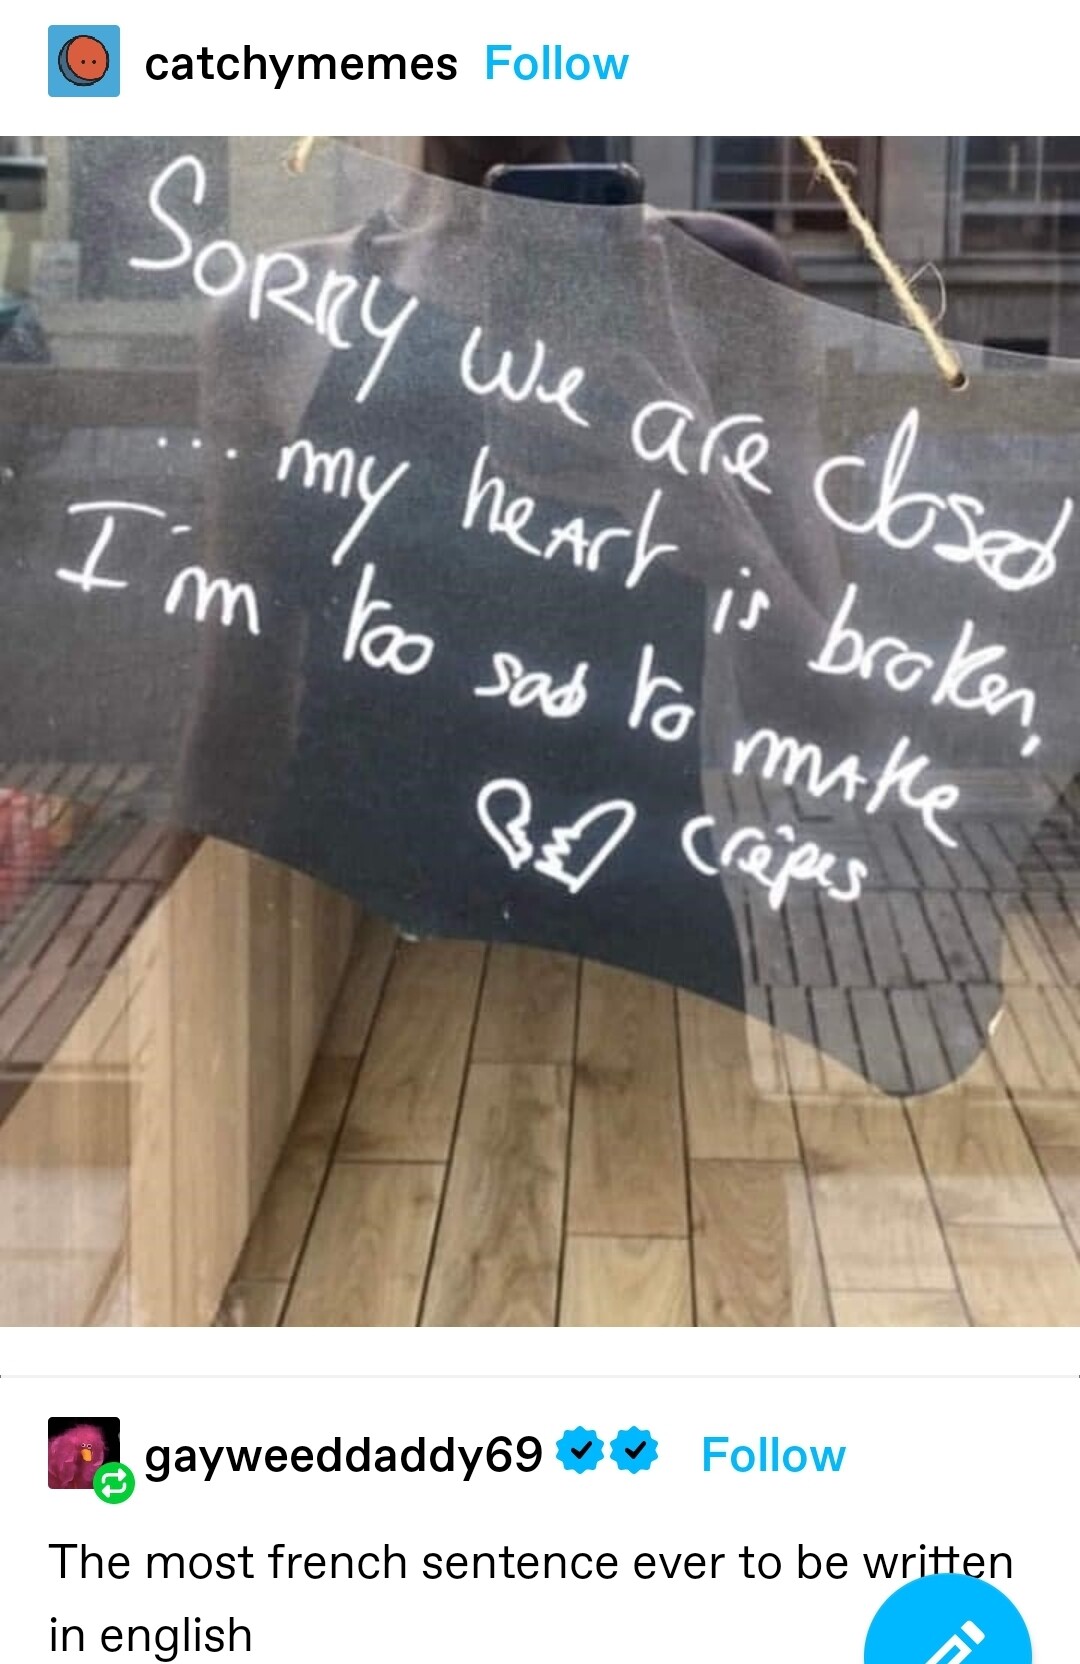 catchymemes Follow
Sorry we are closed
... my heart is broken,
I'm too sad to make
crêpes
gayweeddaddy69 Follow
The most french sentence ever to be written
in english